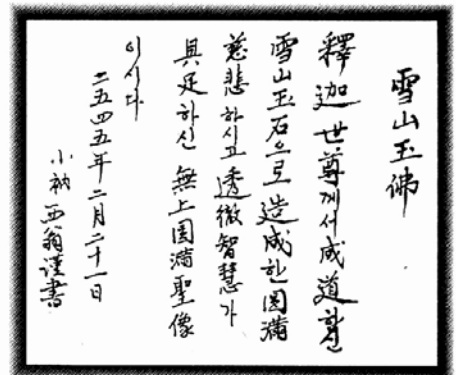 雪山玉佛
釋迦世尊께서成道하신
雪山玉石으로造成한圓滿
慈悲하시고透徹智慧가
具足하신無上圓滿聖像
이시다
二五四五年二月二十一日
小衲西翁謹書